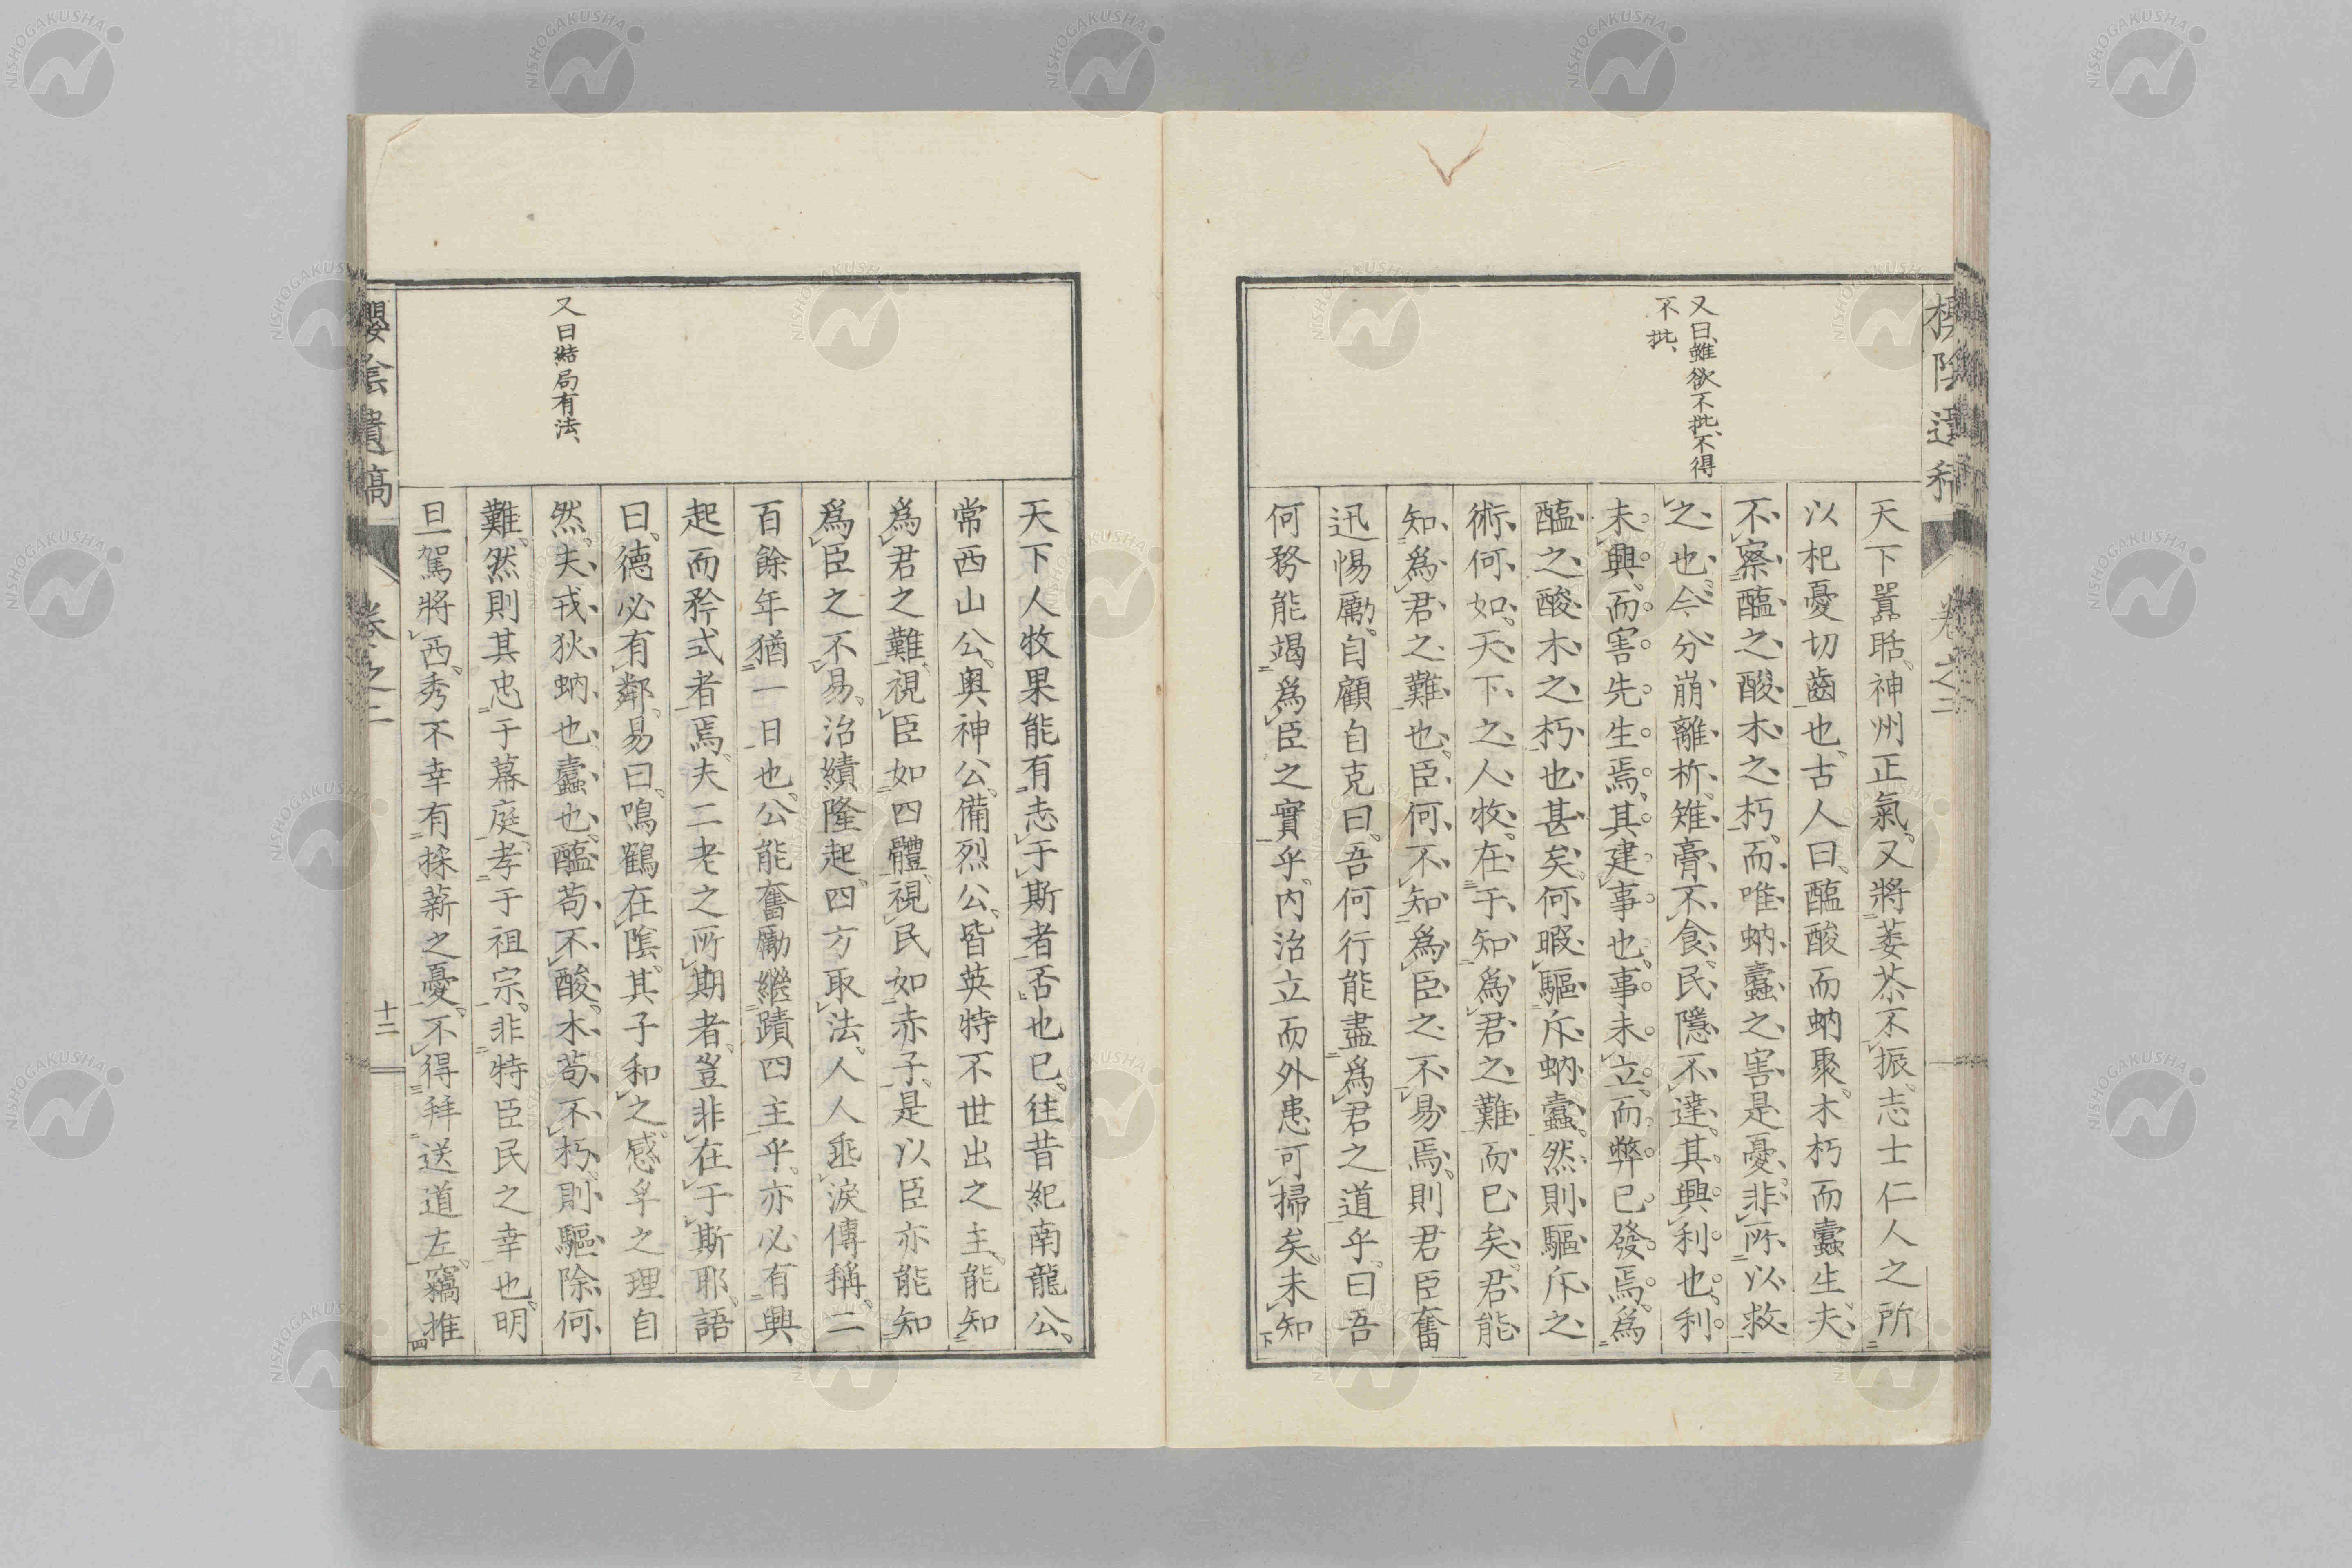 又曰、雖欲不批、不得
不批、
天下嚚聒。神州正氣。又將萎苶不振。志士仁人之所
以杞憂切齒也。古人曰。醯酸而蚋聚。木朽而蠹生。夫
不察醯之酸、木之朽、而唯蚋蠹之害是憂、非所以救
之也、今分崩離析、雉膏不食、民隱不達、其興利也、利
未興、而害先生焉、其建事也、事未立、而弊已發焉、爲
醯之酸、木之朽也甚矣、何暇驅斥蚋蠹、然則驅斥之
術何如、天下之人牧、在于知爲君之難而已矣、君能
知爲君之難也、臣何不知爲臣之不易焉、則君臣奮
迅惕勵。自顧自克曰。吾何行能盡爲君之道乎。曰吾
何務能竭爲臣之實乎。内治立而外患可掃矣。未知
又曰結局有法、
天下人牧果能有志于斯者否也已。往昔紀南龍公。
常西山公。奥神公。備烈公。皆英特不世出之主。能知
爲君之難。視臣如四體。視民如赤子。是以臣亦能知
爲臣之不易。治績隆起。四方取法。人人垂淚傳稱。二
百餘年猶一日也。公能奮勵繼蹟四主乎。亦必有興
起而矜式者焉。夫二老之所期者。豈非在于斯耶。語
曰。德必有鄰。易曰。鳴鶴在陰。其子和之。感孚之理自
然。夫戎狄蚋也、蠹也、醯苟不酸、木苟不朽、則驅除何
難。然則其忠于幕庭。孝于祖宗。非特臣民之幸也。明
旦駕將西。秀不幸有採薪之憂。不得拜送道左。竊推
櫻陰遺稿
卷之二
十二